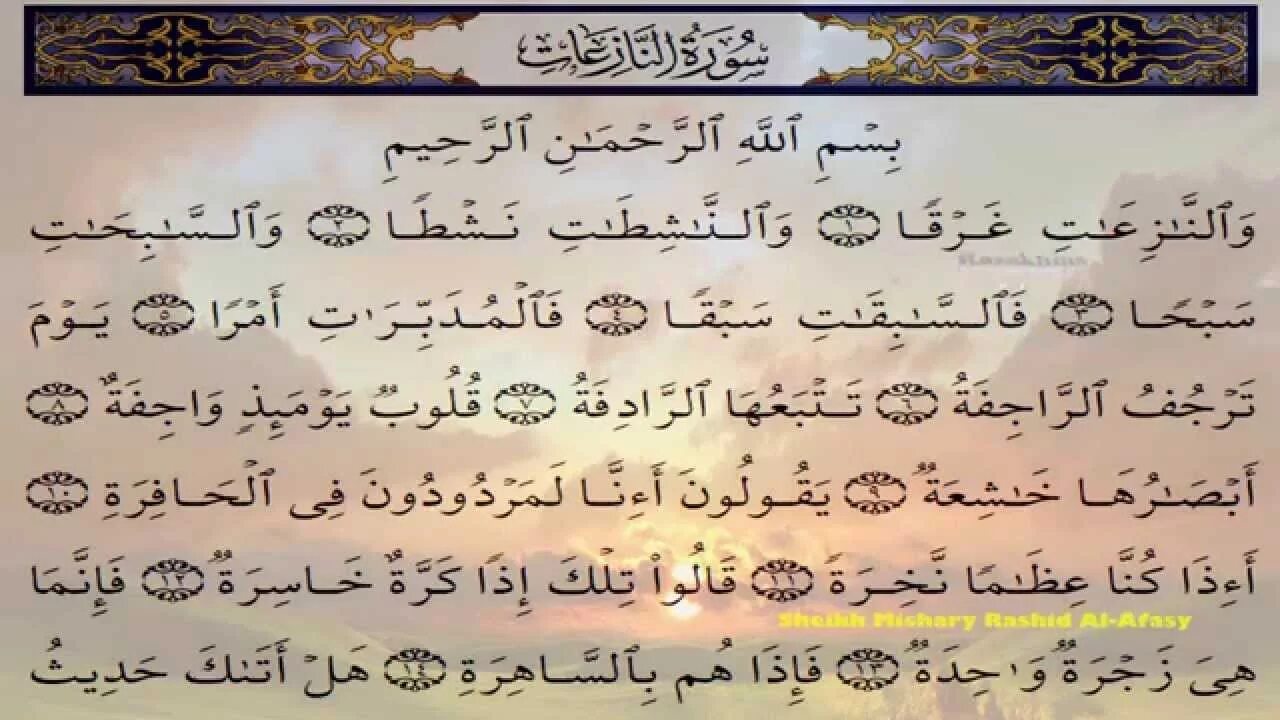 سُورَةُ النَّازِعَاتِ
بِسْمِ ٱللَّهِ ٱلرَّحْمَـٰنِ ٱلرَّحِيمِ
وَٱلنَّـٰزِعَـٰتِ غَرْقًا ۝١ وَٱلنَّـٰشِطَـٰتِ نَشْطًا ۝٢ وَٱلسَّـٰبِحَـٰتِ
سَبْحًا ۝٣ فَٱلسَّـٰبِقَـٰتِ سَبْقًا ۝٤ فَٱلْمُدَبِّرَٰتِ أَمْرًا ۝٥ يَوْمَ
تَرْجُفُ ٱلرَّاجِفَةُ ۝٦ تَتْبَعُهَا ٱلرَّادِفَةُ ۝٧ قُلُوبٌ يَوْمَئِذٍ وَاجِفَةٌ ۝٨
أَبْصَـٰرُهَا خَـٰشِعَةٌ ۝٩ يَقُولُونَ أَءِنَّا لَمَرْدُودُونَ فِى ٱلْحَافِرَةِ ۝١٠
أَءِذَا كُنَّا عِظَـٰمًا نَّخِرَةً ۝١١ قَالُوا۟ تِلْكَ إِذًا كَرَّةٌ خَاسِرَةٌ ۝١٢ فَإِنَّمَا
Sheikh Mishary Rashid Al-Afasy
هِىَ زَجْرَةٌ وَٰحِدَةٌ ۝١٣ فَإِذَا هُم بِٱلسَّاهِرَةِ ۝١٤ هَلْ أَتَىٰكَ حَدِيثُ